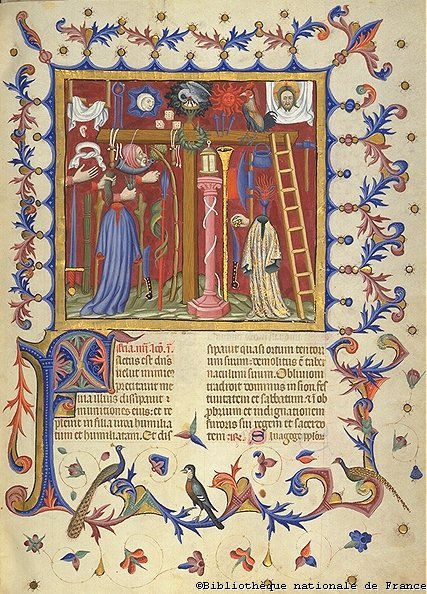 actus est dns
uelut inimic
precipitauit me
nia illius dissipauit
munitiones eius: et re
pleuit in filia iuda humilia
tum et humiliatam. Et dis
sipauit quasi ortum tentori
um suum: demolitus ē taber
naculum suum. Obliuioni
tradidit dominus in syon fes
tiuitatem et sabbatum: et ī ob
probrium et indignationem
furoris sui regem et sacerdo
tem
©Bibliothèque nationale de France